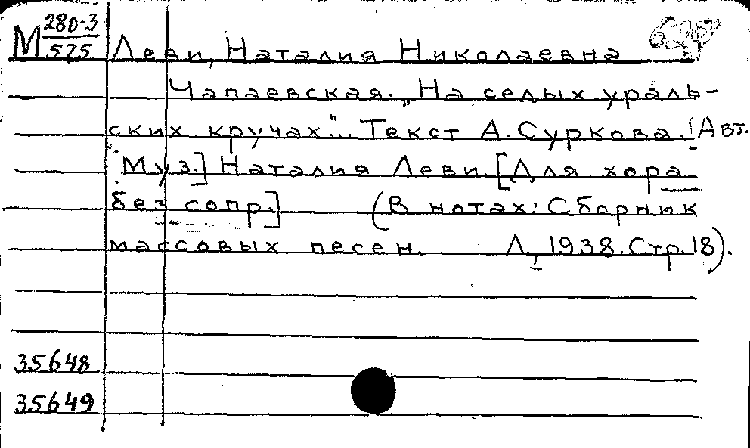 М 280-3
575
Леви, Наталия Николаевна
Чапаевская. „На седых ураль-
ских кручах"... Текст А. Суркова. [Авт.
муз.] Наталия Леви. [Для хора
без сопр.] (В нотах: Сборник
массовых песен. Л., 1938. Стр. 18).
35648
35649